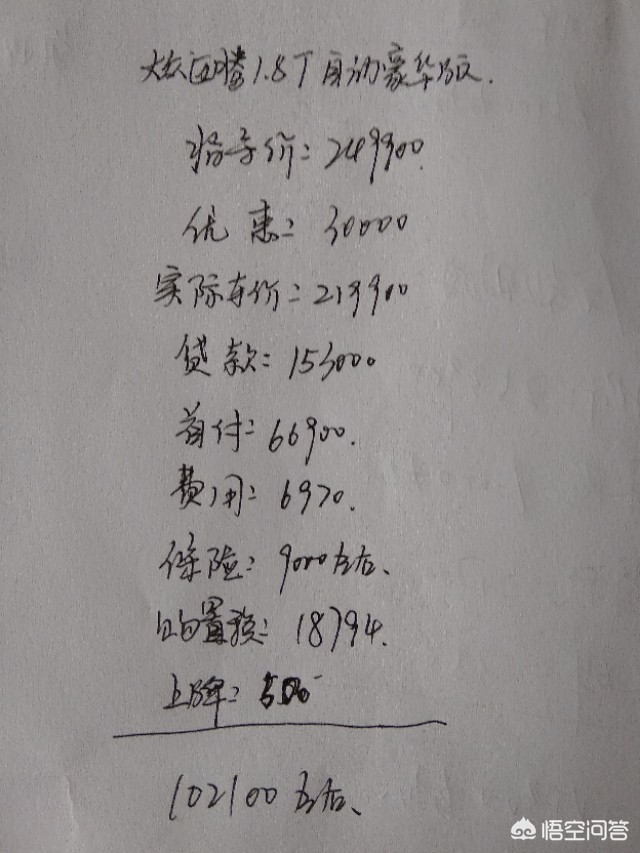 大众迈腾1.8T自动豪华版.
指导价:249900.
优惠:30000
实际车价:219900
贷款:153000
首付:66900.
费用:6970.
保险:9000左右、
购置税:18794.
上牌:500
102100左右、
悟空问答